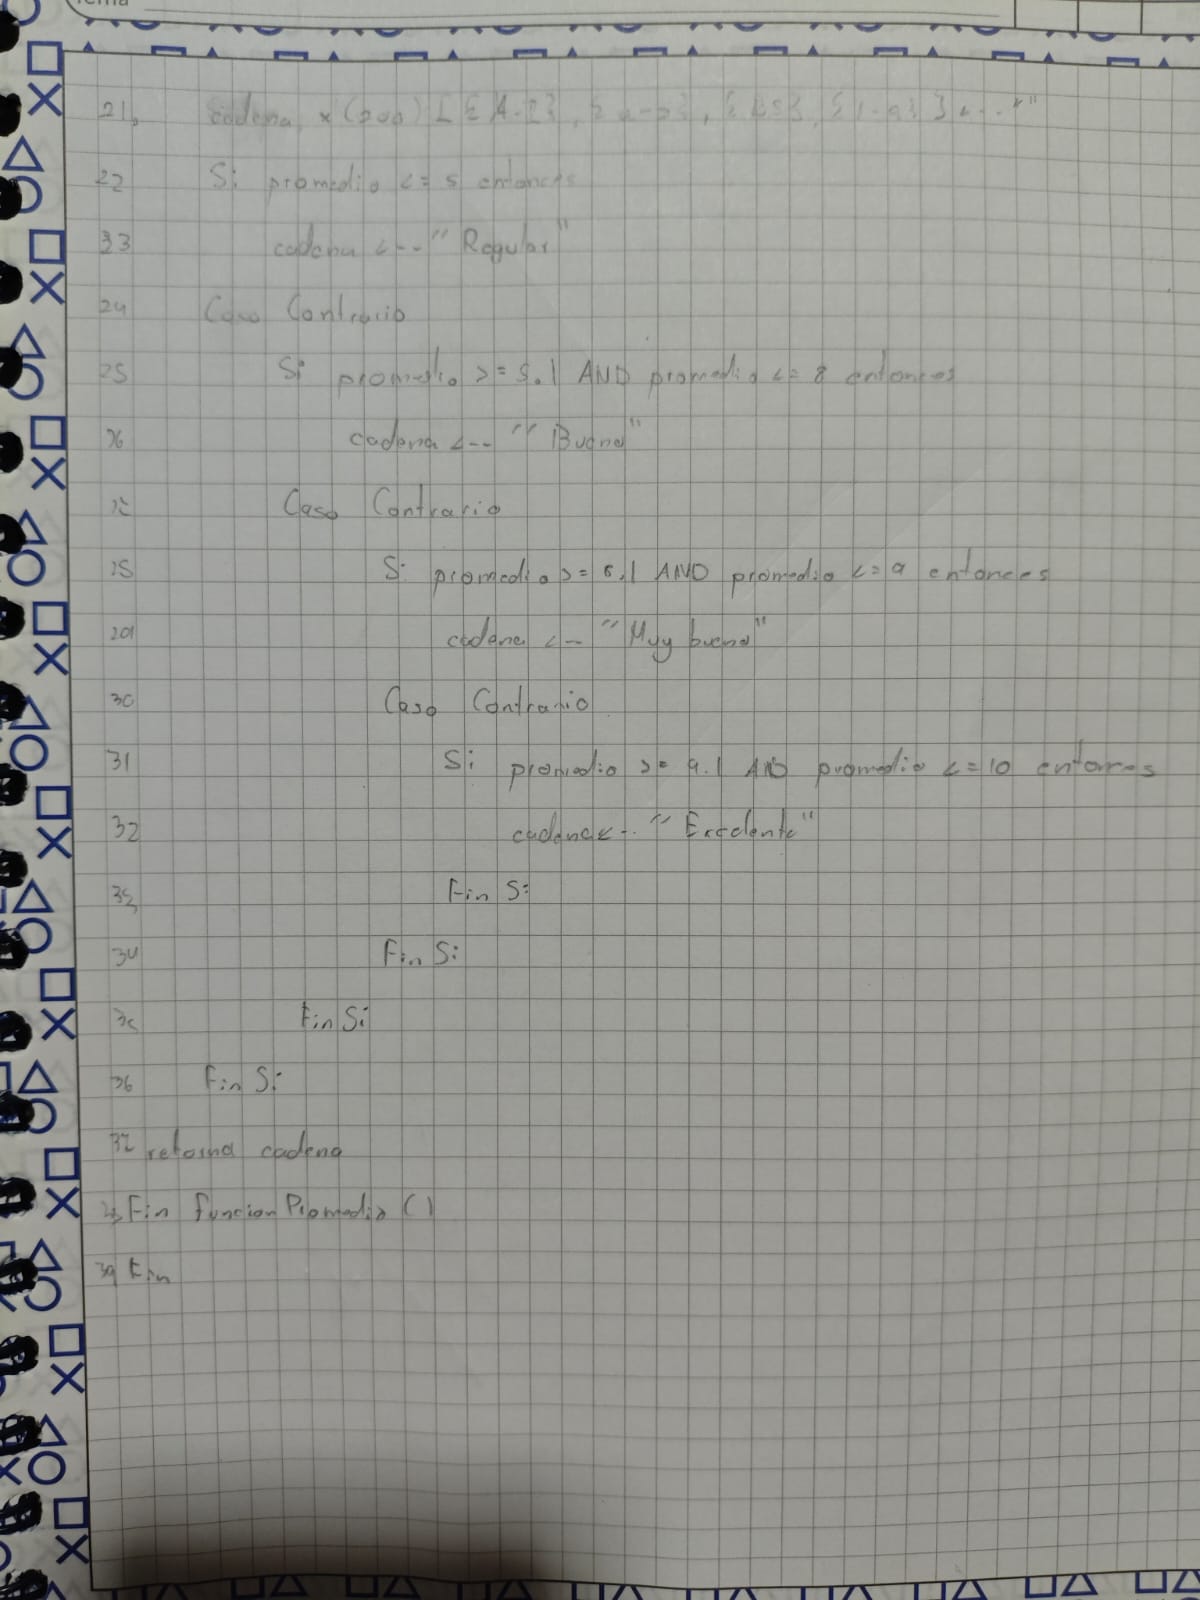 Tema
21. cadena x (200) [ {A-Z}, {a-z}, {ES}, {1-9} ] <--- " "
22 Si promedio <= 5 entonces
23 cadena <-- "Regular"
24 Caso Contrario
25 Si promedio >= 5.1 AND promedio <= 8 entonces
26 cadena <-- "Bueno"
27 Caso Contrario
28 Si promedio >= 8.1 AND promedio <= 9 entonces
29 cadena <-- "Muy bueno"
30 Caso Contrario
31 Si promedio >= 9.1 AND promedio <= 10 entonces
32 cadena <-- "Excelente"
33 Fin Si
34 Fin Si
35 Fin Si
36 Fin Si
37 retorna cadena
38 Fin funcionPromedio ()
39 Fin